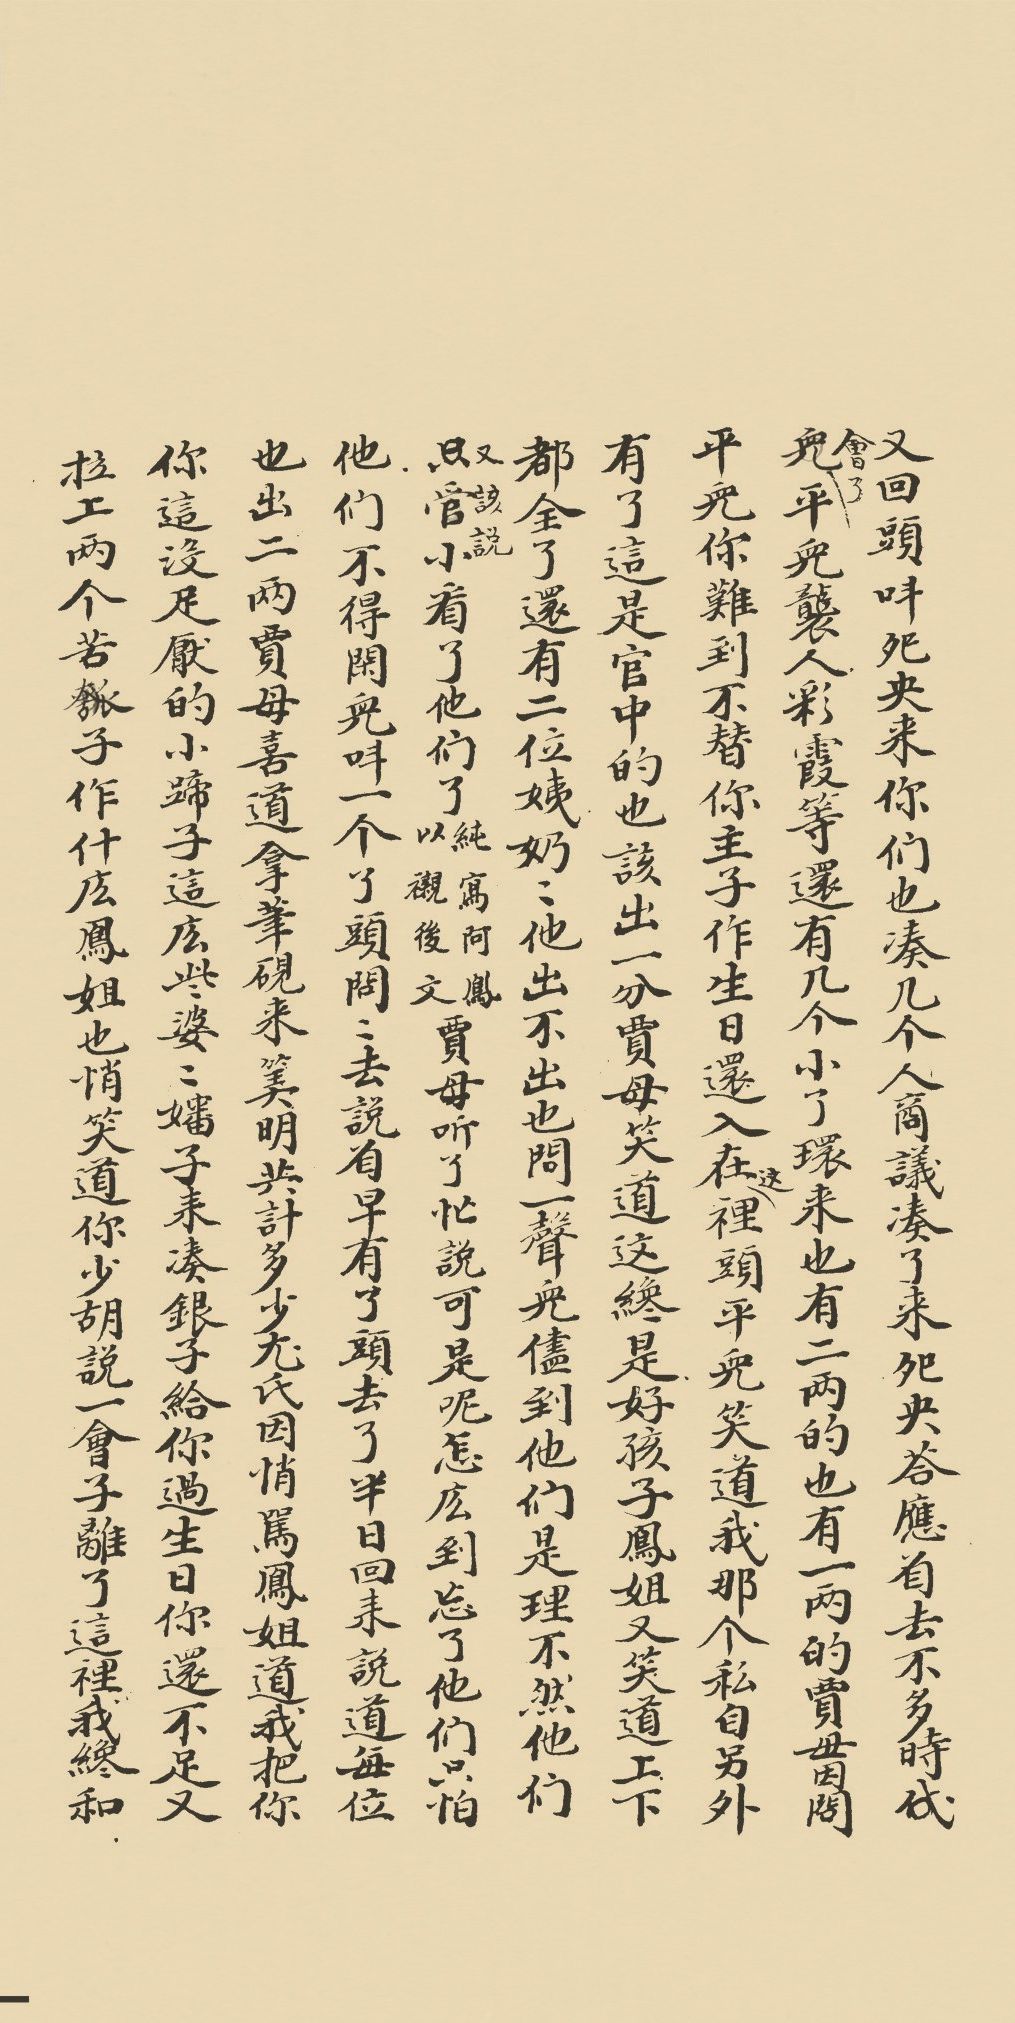 又回頭呌夗央来你们也凑几个人商議凑了来夗央荅應着去不多時伐
會了
兒平兒襲人彩霞等還有几个小丫環来也有二两的也有一两的賈母因問
平兒你難到不替你主子作生日還入在這裡頭平兒笑道我那个私自另外
有了這是官中的也該出一分賈母笑道这纔是好孩子鳳姐又笑道上下
都全了還有二位姨奶〻他出不出也問一聲兒儘到他们是理不然他们
又該説
只管小看了他们了
純寫阿鳳
以襯後文
賈母听了忙説可是呢怎庅到忘了他们只怕
他们不得閑兒呌一个丫頭問〻去説着早有丫頭去了半日回来説道每位
也出二两賈母喜道拿筆硯来筭明共計多少尤氏因悄罵鳳姐道我把你
你這没足厭的小蹄子這庅些婆〻嬸子来凑銀子給你過生日你還不足又
拉上两个苦瓠子作什庅鳳姐也悄笑道你少胡説一會子離了這裡我纔和